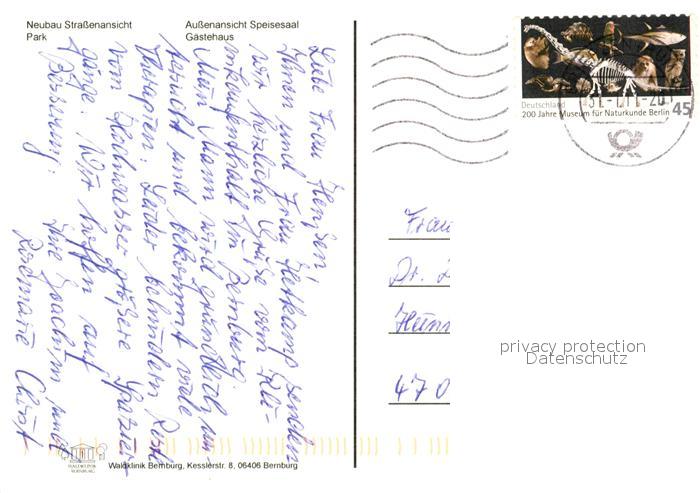 Neubau Straßenansicht
Park
Außenansicht Speisesaal
Gästehaus
Liebe Frau
Ihnen und Frau senden
wir herzliche Grüße vom
aufenthalt in Bernburg.
Mein Mann wird gründlich un-
tersucht und bekommt viele
Therapien. Leider behindern Reste
vom Hochwasser größere Spazier-
gänge. Wir hoffen auf
Besserung.
Ihre Joachim und
Rosmarie
WALDKLINIK
BERNBURG
Waldklinik Bernburg, Kesslerstr. 8, 06406 Bernburg
Deutschland
200 Jahre Museum für Naturkunde Berlin
45
Frau
Dr.
470
privacy protection
Datenschutz